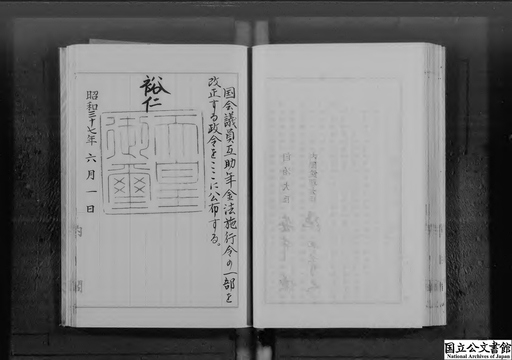 国会議員互助年金法施行令の一部を
改正する政令をここに公布する。
裕仁
天皇
御璽
昭和三十七年六月一日
国立公文書館
National Archives of Japan